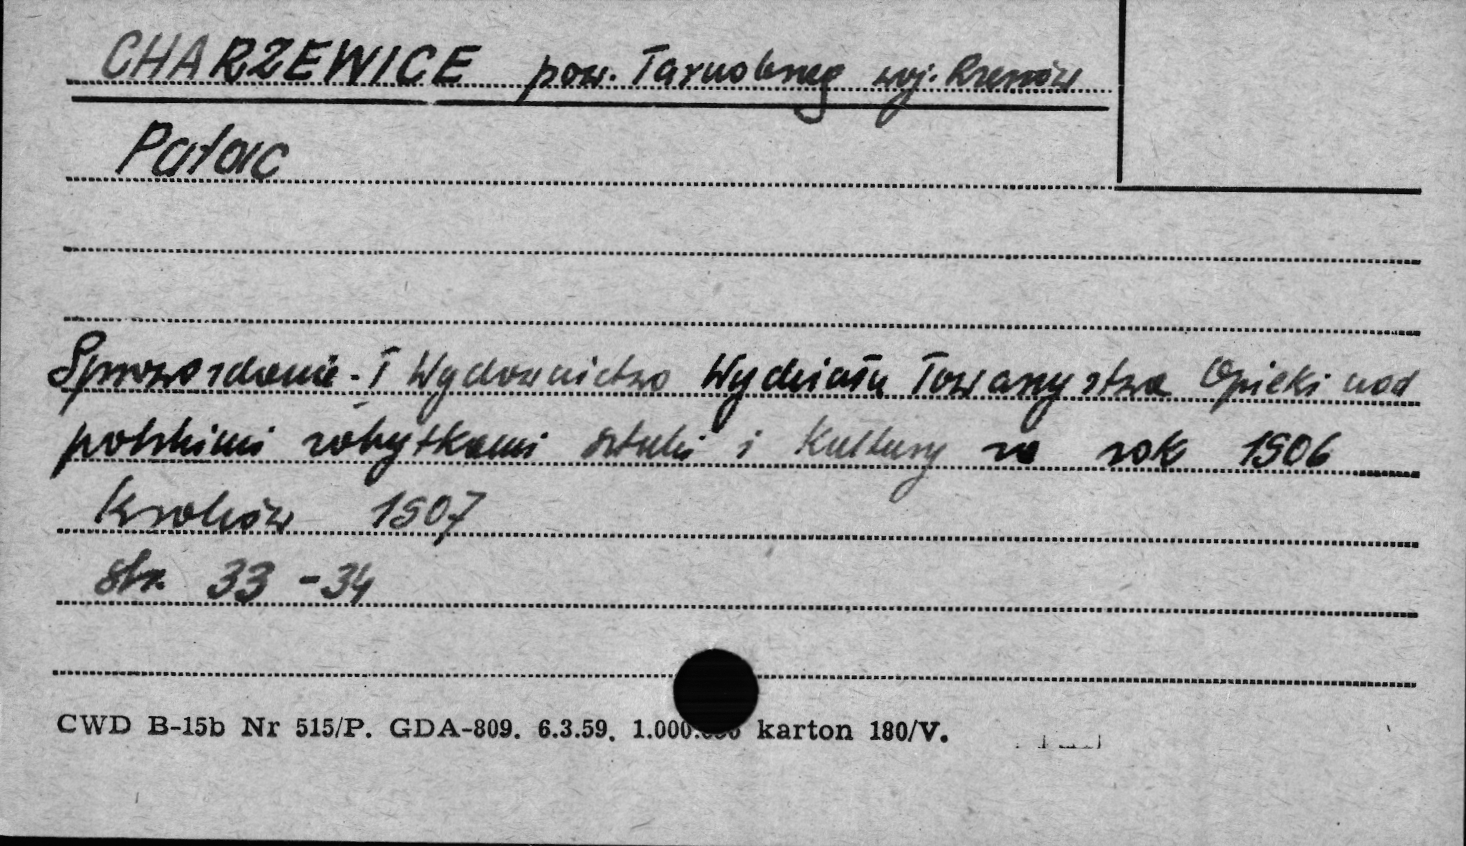 CHARZEWICE pow. Tarnobrzeg woj. Rzeszów
Pałac
Sprawozdanie i Wydawnictwo Wydziału Towarzystwa Opieki nad
polskimi zabytkami sztuki i kultury za rok 1906
Kraków 1907
str. 33-34
CWD B-15b Nr 515/P. GDA-809. 6.3.59. 1.000.000 karton 180/V.